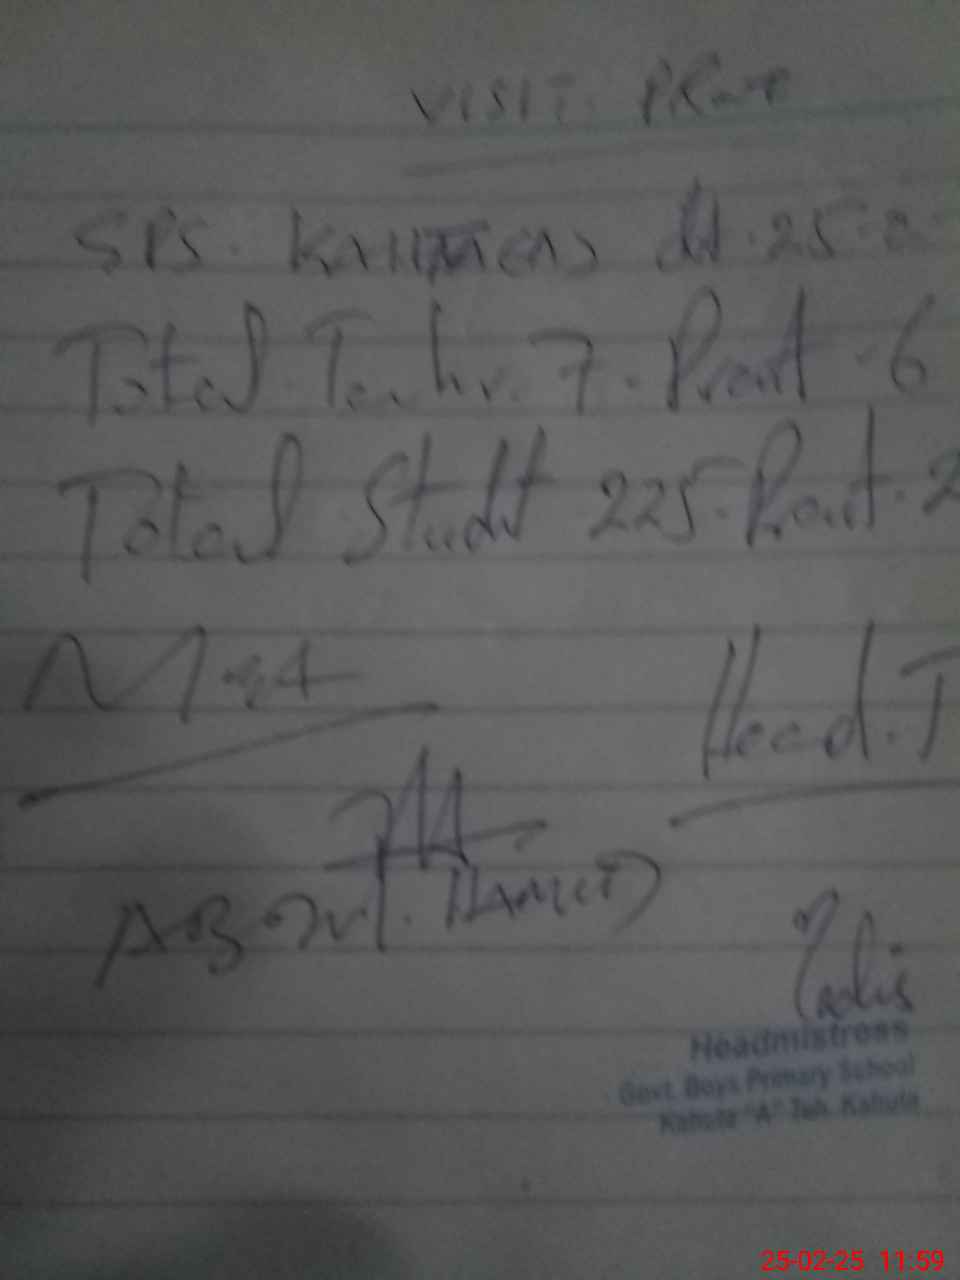 VISIT
SPS. dt. 25-2
Total Techr. 7. Prent. 6
Total Studt 225. Prent. 2
Head. T
ABDUL. HAMEED
Headmistress
Govt. Boys Primary School
Kahuta "A" Teh. Kahuta
25-02-25 11:59